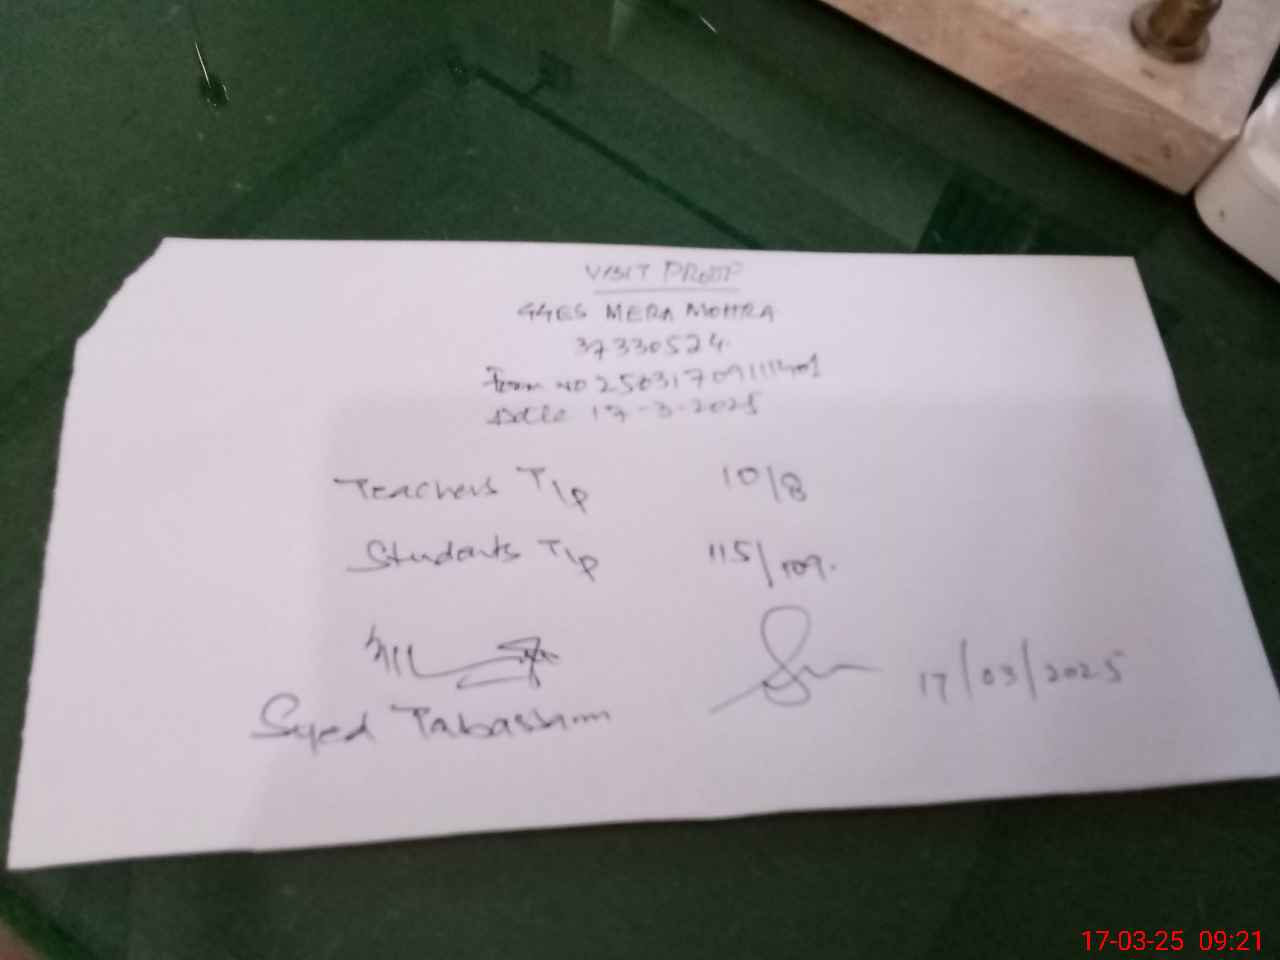 VISIT PROOF
GGES MERA MOHRA
37330524
Form NO
Date 17-3-2025
Teachers T/P 10/8
Students T/P 115/109.
Syed Tabassum
17/03/2025
17-03-25 09:21